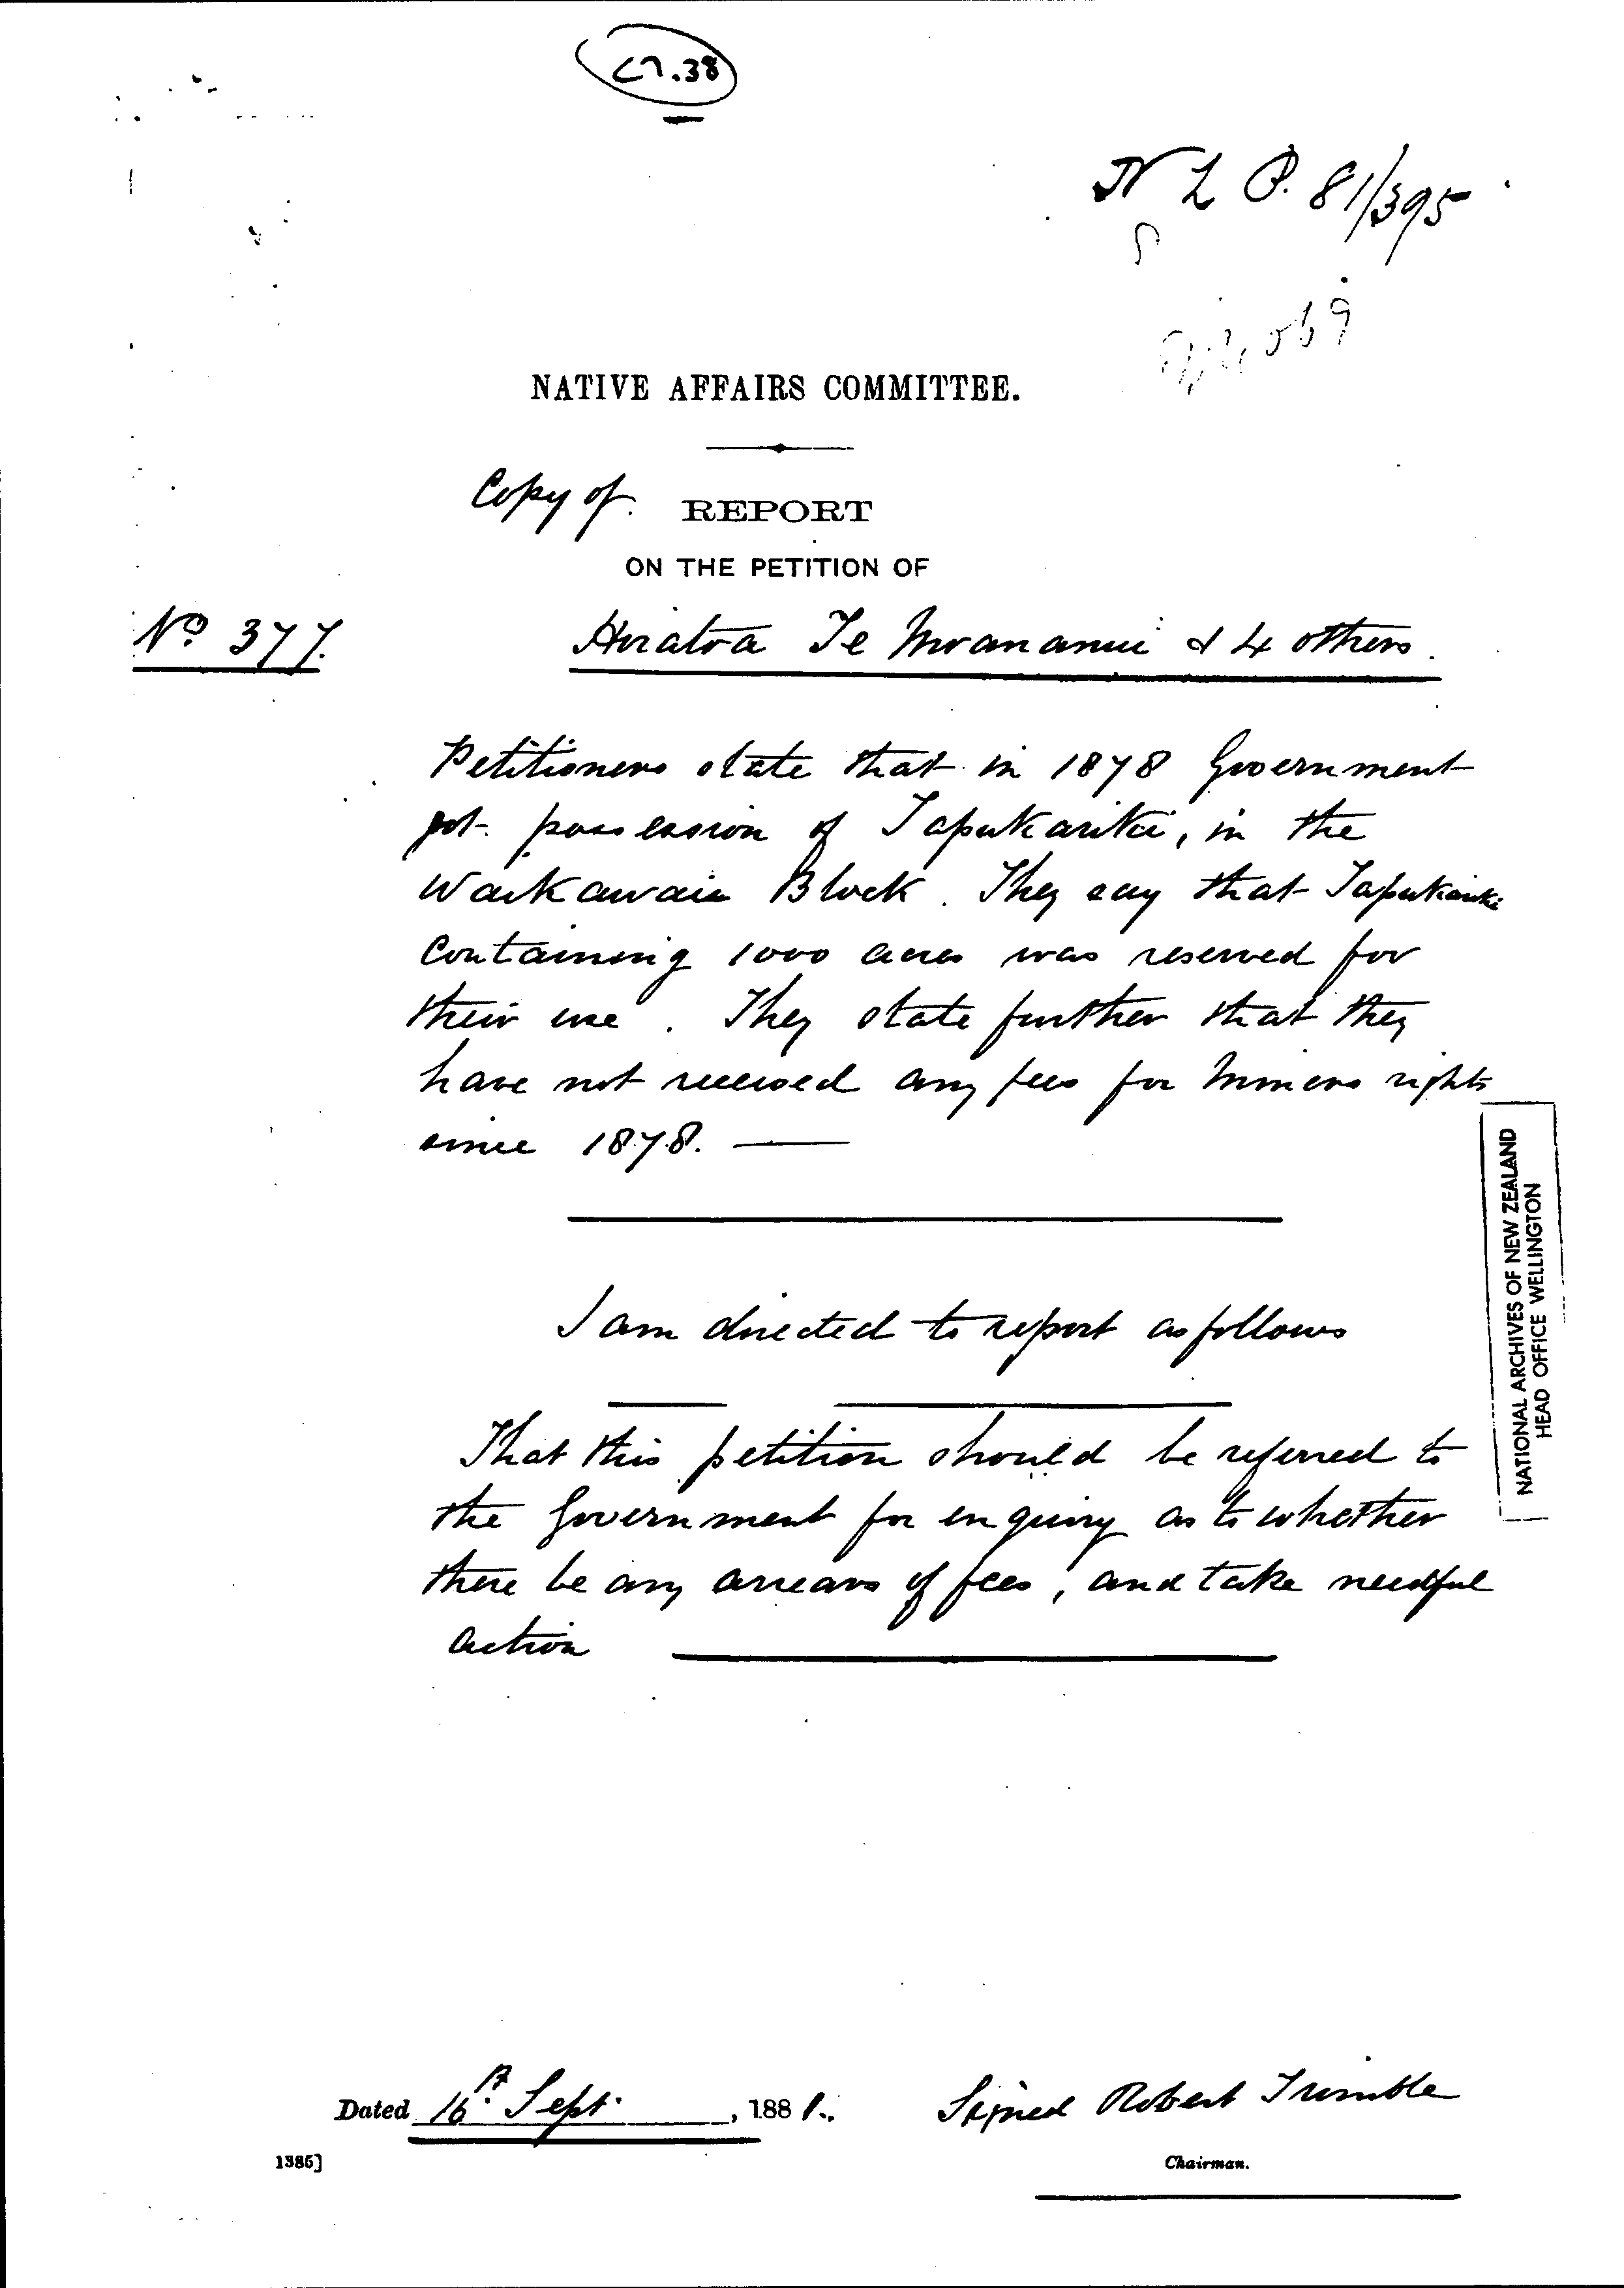 N L P. 81/395
NATIVE AFFAIRS COMMITTEE.
Copy of REPORT
ON THE PETITION OF
No 377.
Te Moananui & 4 others.
Petitioners state that in 1878 Government
got possession of Tapukariki, in the
Block. They say that Tapukariki
containing 1000 acres was reserved for
their use. They state further that they
have not received any fees for Miners rights
since 1878.
I am directed to report as follows
That this petition should be referred to
the Government for enquiry as to whether
there be any arrears of fees, and take needful
action
NATIONAL ARCHIVES OF NEW ZEALAND
HEAD OFFICE WELLINGTON
Dated 16th Sept. , 1881.
Signed Robert Trimble
1385]
Chairman.